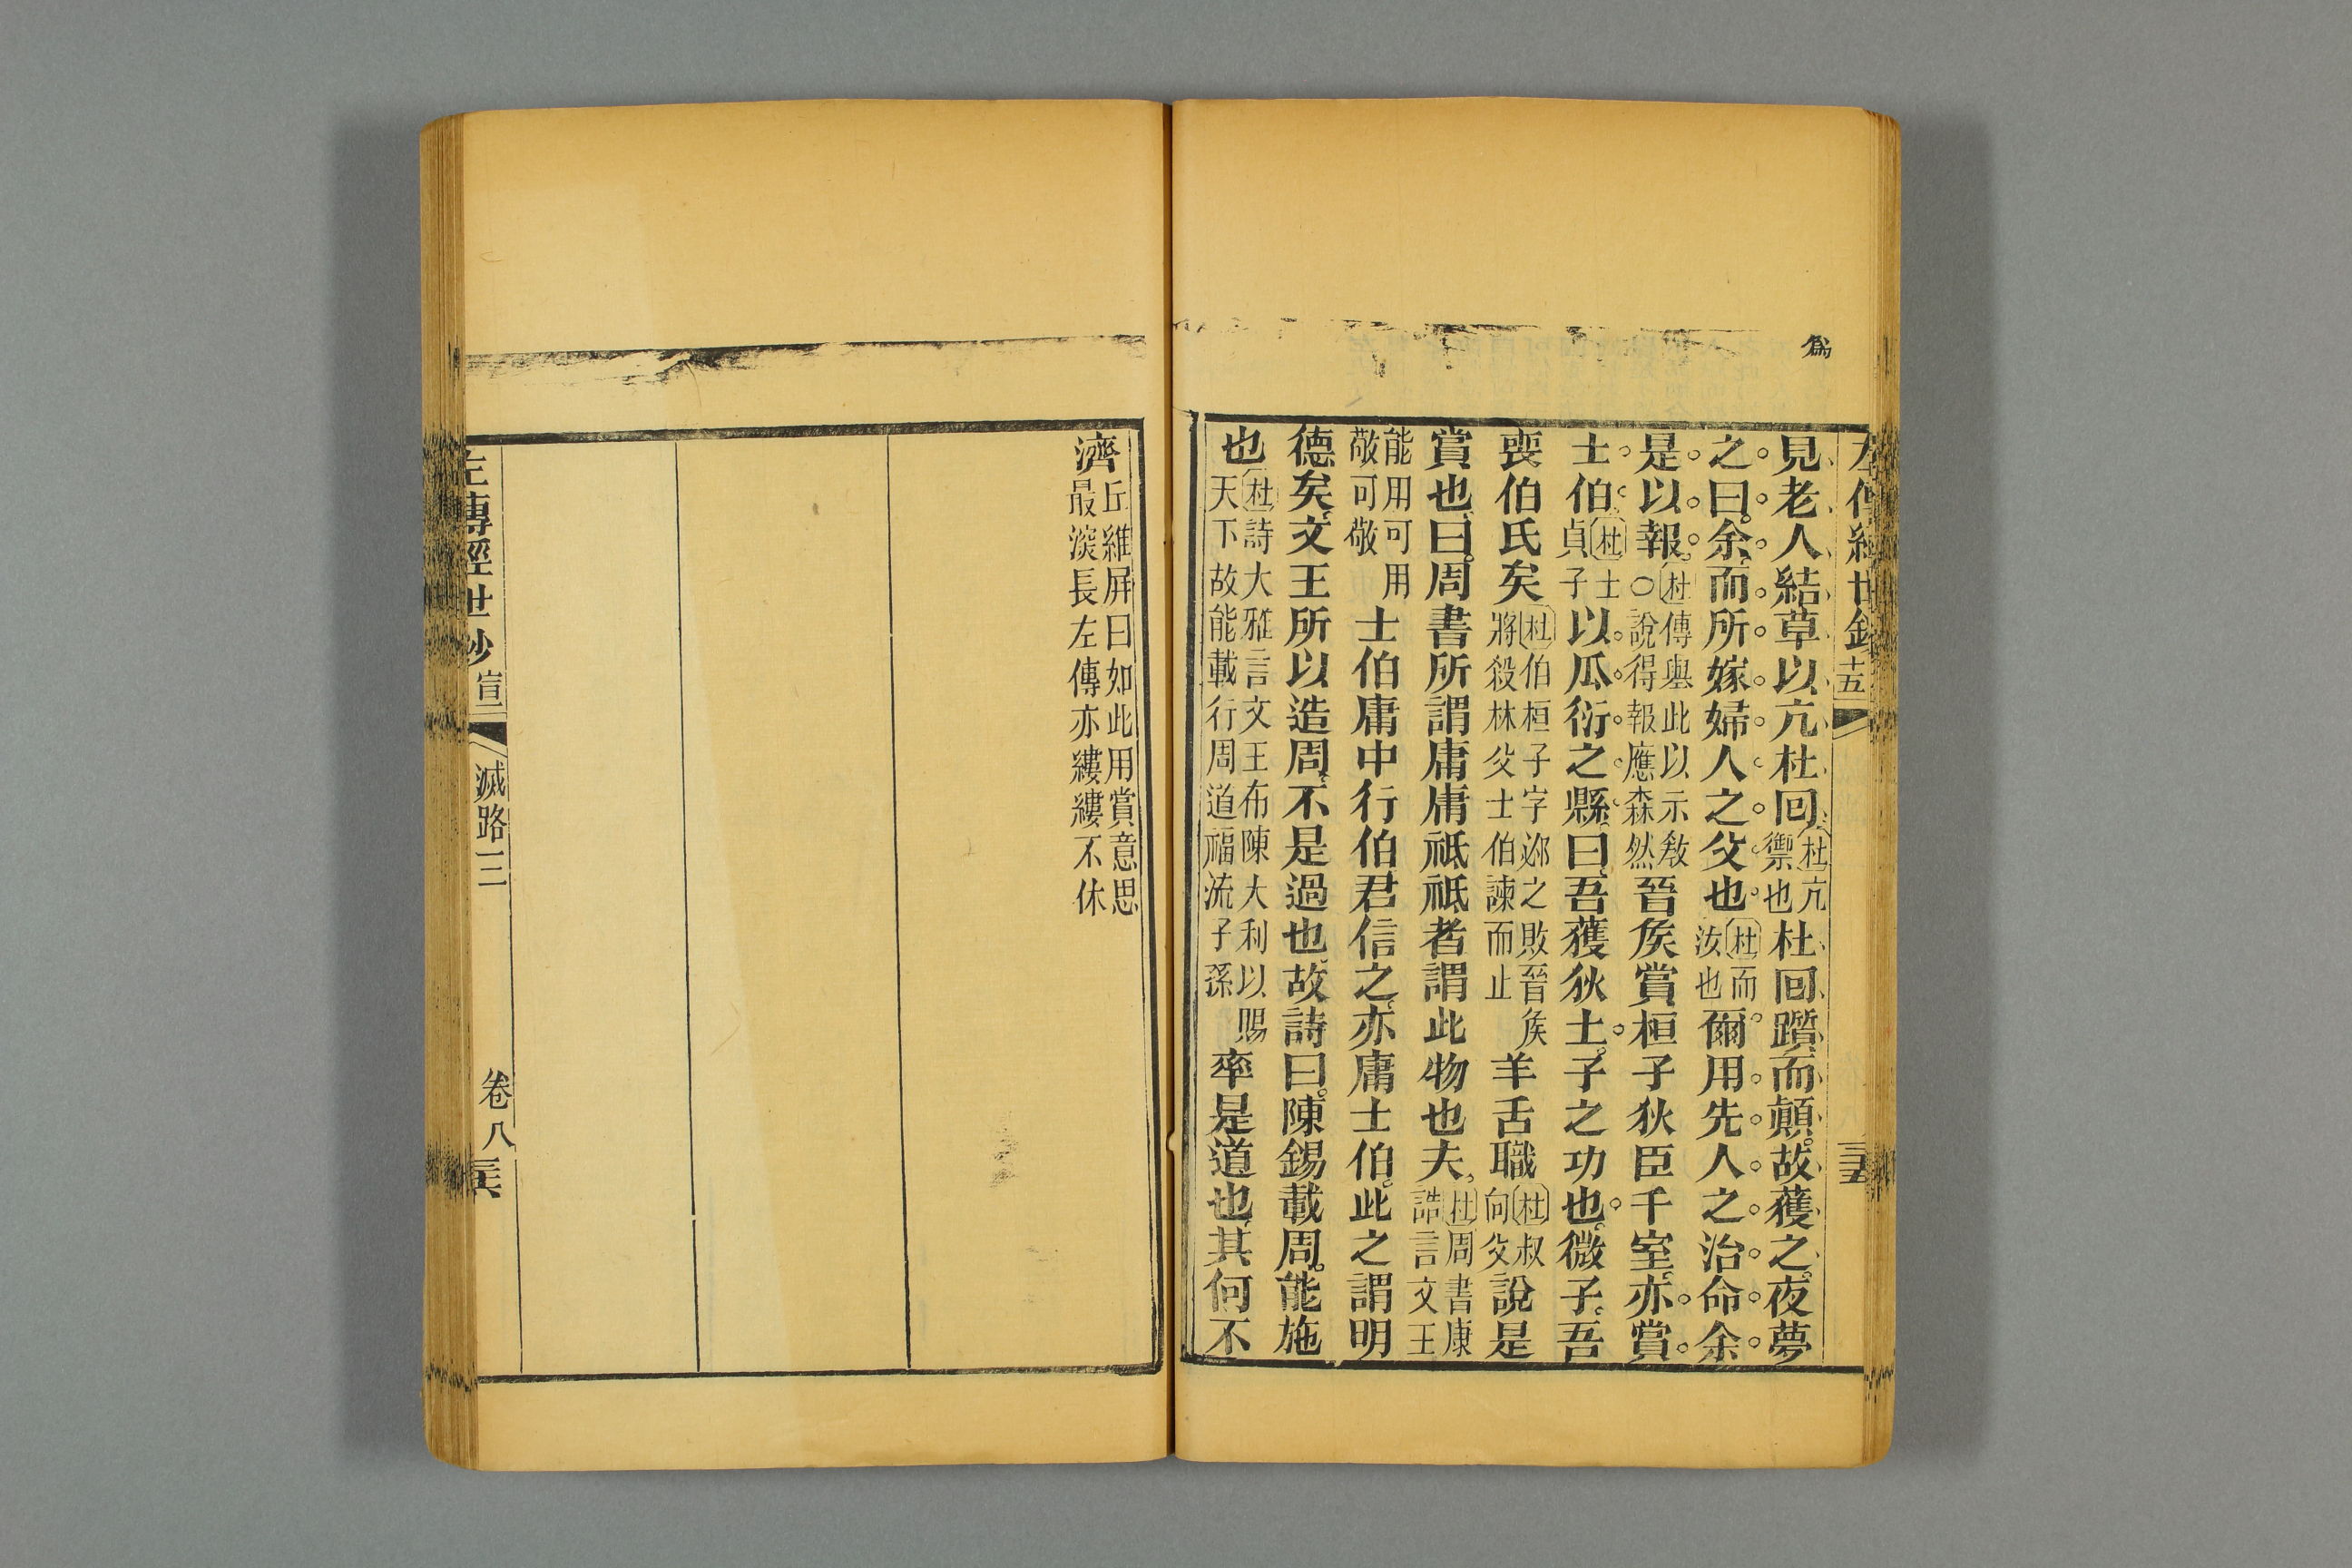 為
左傳經世鈔
十五
三十五
見老人結草以亢杜回杜亢禦也杜回躓而顛故獲之夜夢
之曰余而所嫁婦人之父也杜而汝也爾用先人之治命余
是以報杜傳舉此以示敎○說得報應森然晉矦賞桓子狄臣千室亦賞
士伯杜士貞子以瓜衍之縣曰吾獲狄土子之功也微子吾
喪伯氏矣杜伯桓子字邲之敗晉矦將殺林父士伯諫而止羊舌職杜叔向父說是
賞也曰周書所謂庸庸祗祗者謂此物也夫杜周書康誥言文王
能用可用敬可敬士伯庸中行伯君信之亦庸士伯此之謂明
德矣文王所以造周不是過也故詩曰陳錫載周能施
也杜詩大雅言文王布陳大利以賜天下故能載行周道福流子孫率是道也其何不
濟丘維屏曰如此用賞意思最深長左傳亦縷縷不休
左傳經世鈔
宣
滅路三
卷八
三十六